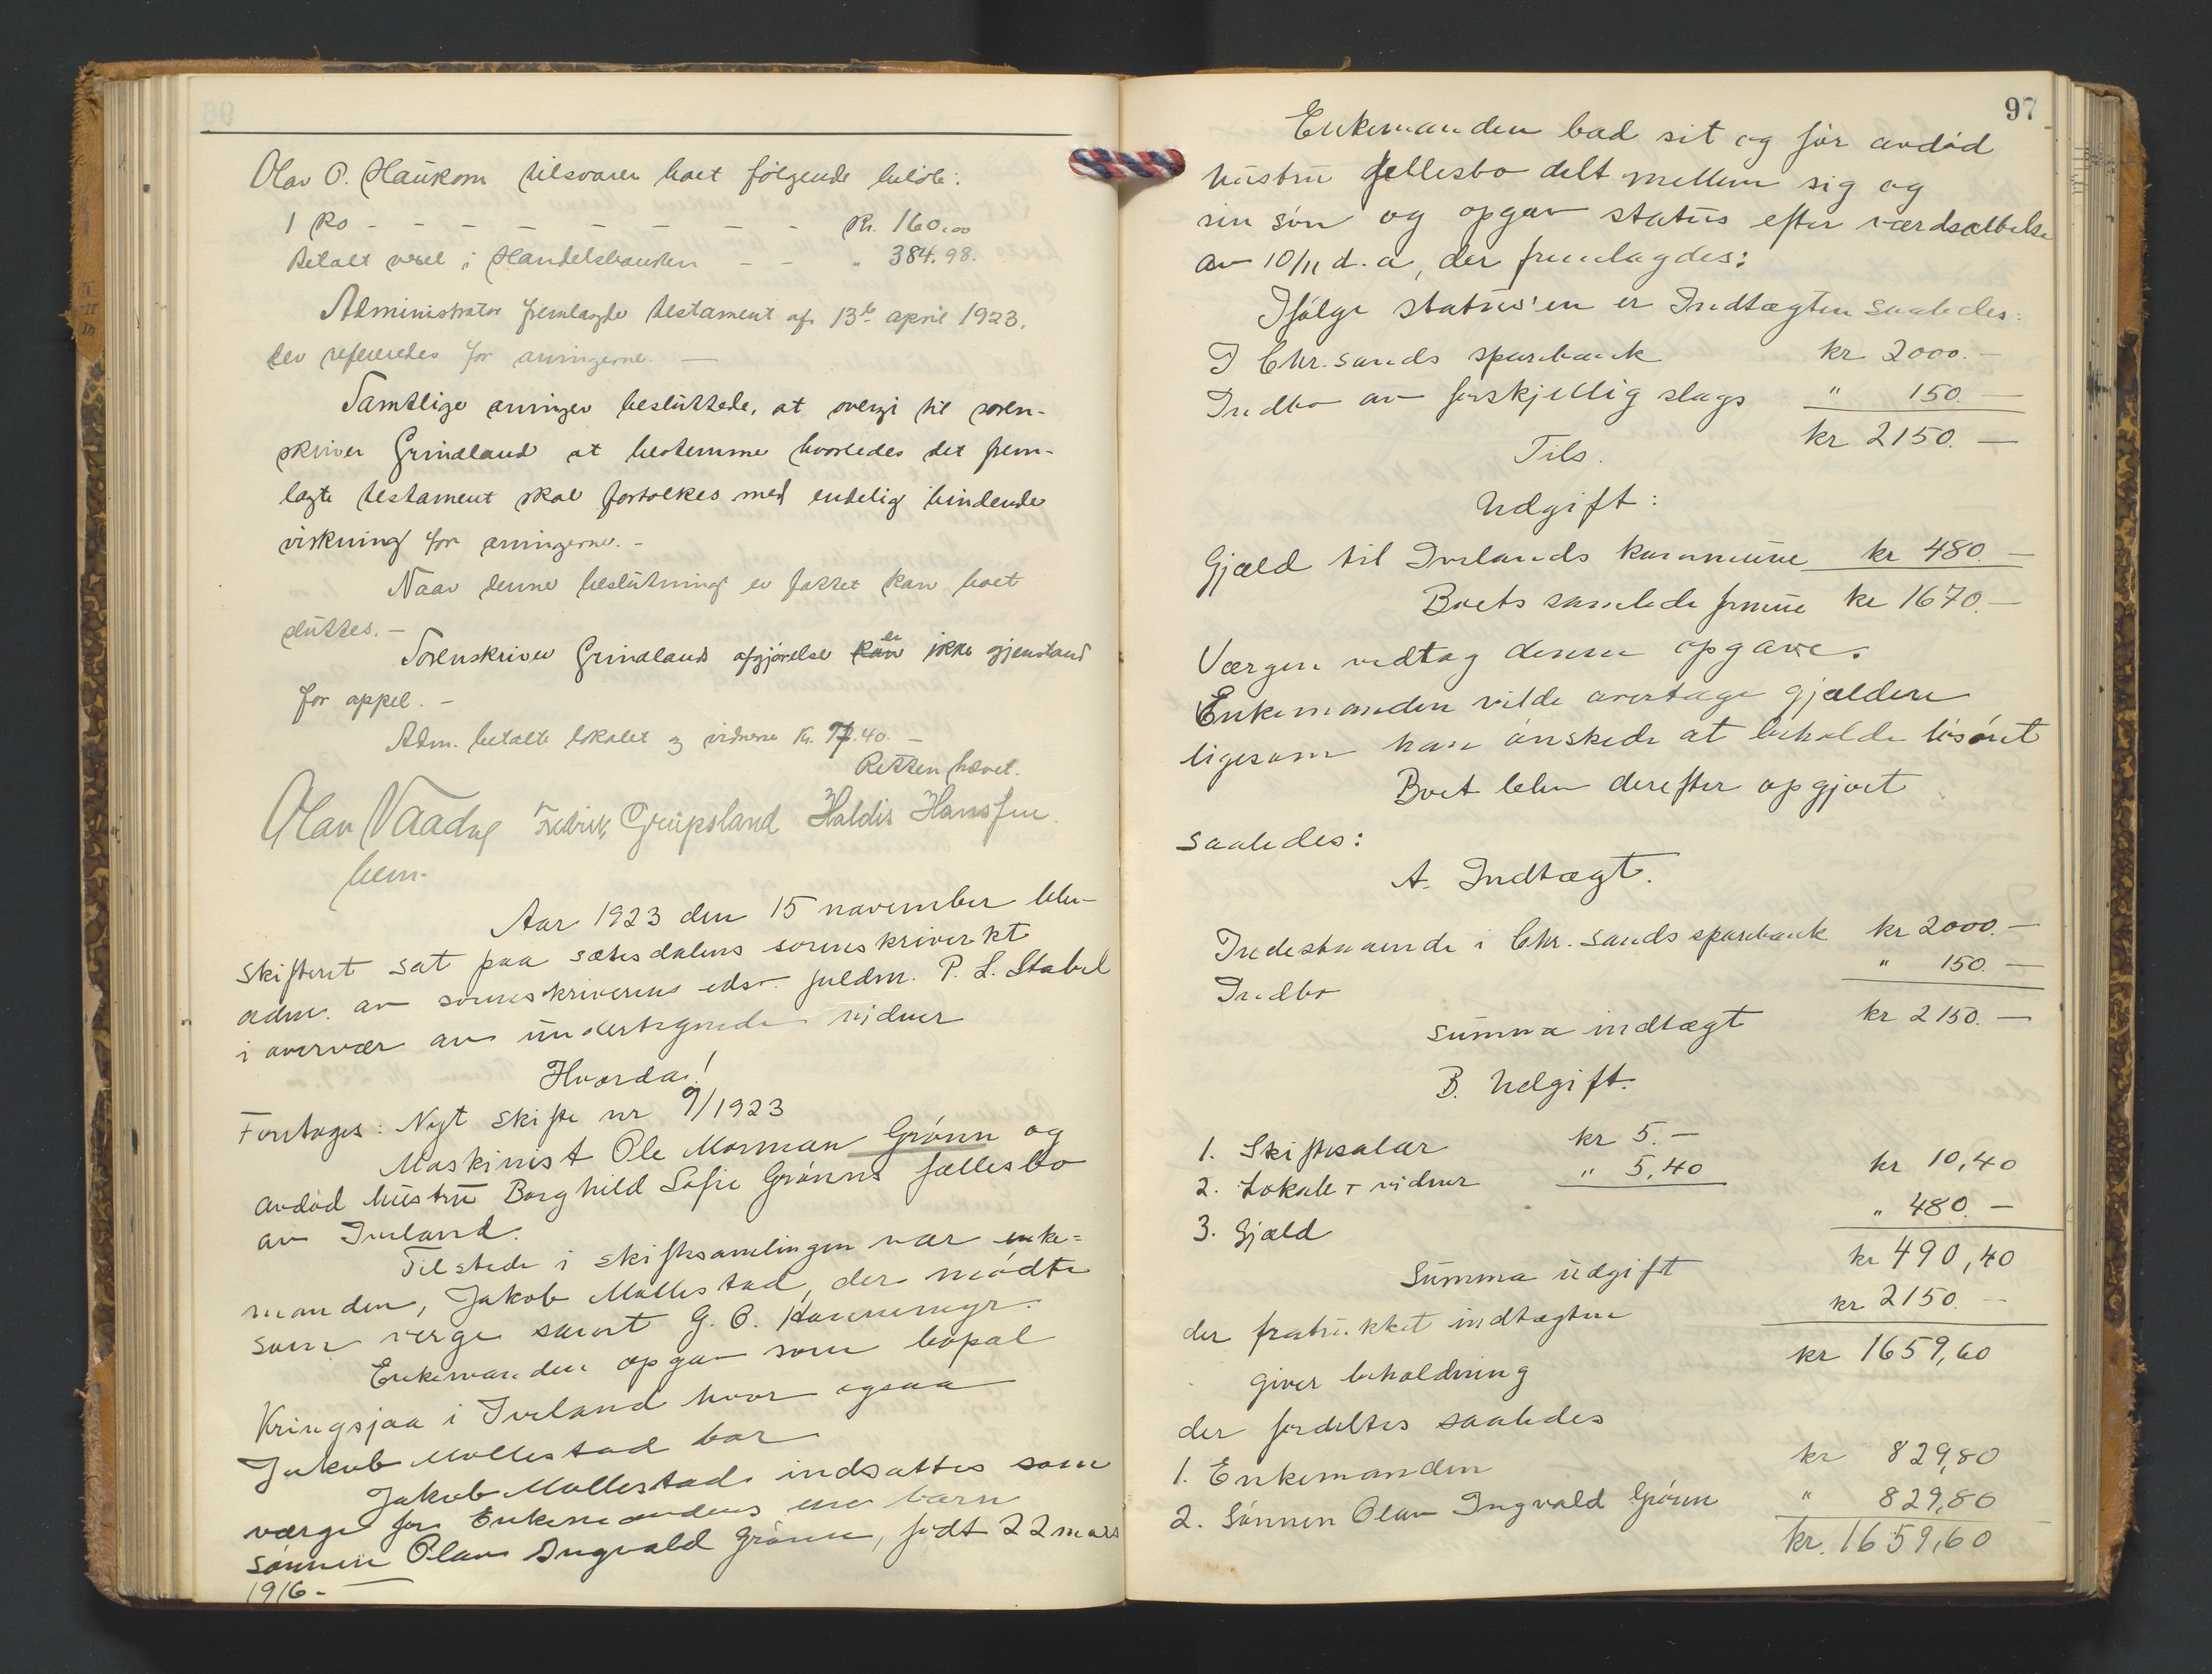 Olav O. Haukom tilsvarer boet følgende beløb:
1 Ko - - - - - - - - Kr. 160.00
Betalt veksel i Handelsbanken - - " 384.98.
Administrator fremlagde testament af 13de april 1923.
der refereredes for arvingerne. —
Samtlige arvinger besluttede, at overgi til soren-
skriver Grindland at bestemme hvorledes det frem-
lagte testament skal fortolkes med endelig bindende
virkning for arvingerne. -
Naar denne beslutning er fattet kan boet
sluttes. -
Sorenskriver Grindlands afgjørelse kan er ikke gjenstand
for appel. -
Adm. betalte lokalet og vidnerne Kr. 7.40. —
Retten hævet.
Olav Vaadne Fredrik Greipsland Haldis Hanssen.
bem.
Aar 1923 den 15 november blev
skifteret sat paa sætesdalens sorenskriverkt
adm. av sorenskriverens edsv. fuldm. P. L. Stabel
i overvær av undertegnede vidner
Hvorda!
Foretoges: Nyt skifte nr 9/1923
Maskinist Ole Morman Grønn og
avdød hustru Borghild Sofie Grønns fællesbo
av Iveland.
Tilstede i skiftesamlingen var enke=
manden, Jakob Mollestad, der mødte
som verge samt G. O. Honnemyr.
Enkemanden opgav som bopal
Kringsjaa i Iveland hvor ogsaa
Jakob Mollestad bor
Jakob Mollestad indsattes som
værge for Enkemandens ene barn
sønnen Olav Ingvald Grønn, født 22 mars
1916. —
97
Enkemanden bad sit og før avdød
hustru fellesbo delt mellem sig og
sin søn og opgav status efter værdsættelse
av 10/11 d. a, der fremlagdes:
Ifølge status'en er Indtægten saaledes:
I Chr.sands sparebank kr 2000. —
Indbo av forskjellig slags " 150. —
Tils. kr 2150. —
Udgift:
Gjæld til Ivelands kommune kr 480. —
Boets samlede formue kr 1670. —
Værgen vedtog denne opgave.
Enkemanden vilde overtage gjælden
ligesom han ønskede at beholde løsøret
Boet blev derefter opgjort
saaledes:
A. Indtægt.
Indestaaende i Chr.sands sparebank kr 2000. —
Indbo " 150. —
Summa indtægt kr 2150. —
B. Udgift.
1. Skiftesalær kr 5. —
2. Lokale + vidner " 5,40 kr 10,40
3. Gjæld " 480. —
Summa udgift kr 490,40
der fratrukket indtægten kr 2150 —
giver beholdning kr 1659,60
der fordeltes saaledes
1. Enkemanden kr 829,80
2. Sønnen Olav Ingvald Grønn " 829,80
kr. 1659,60